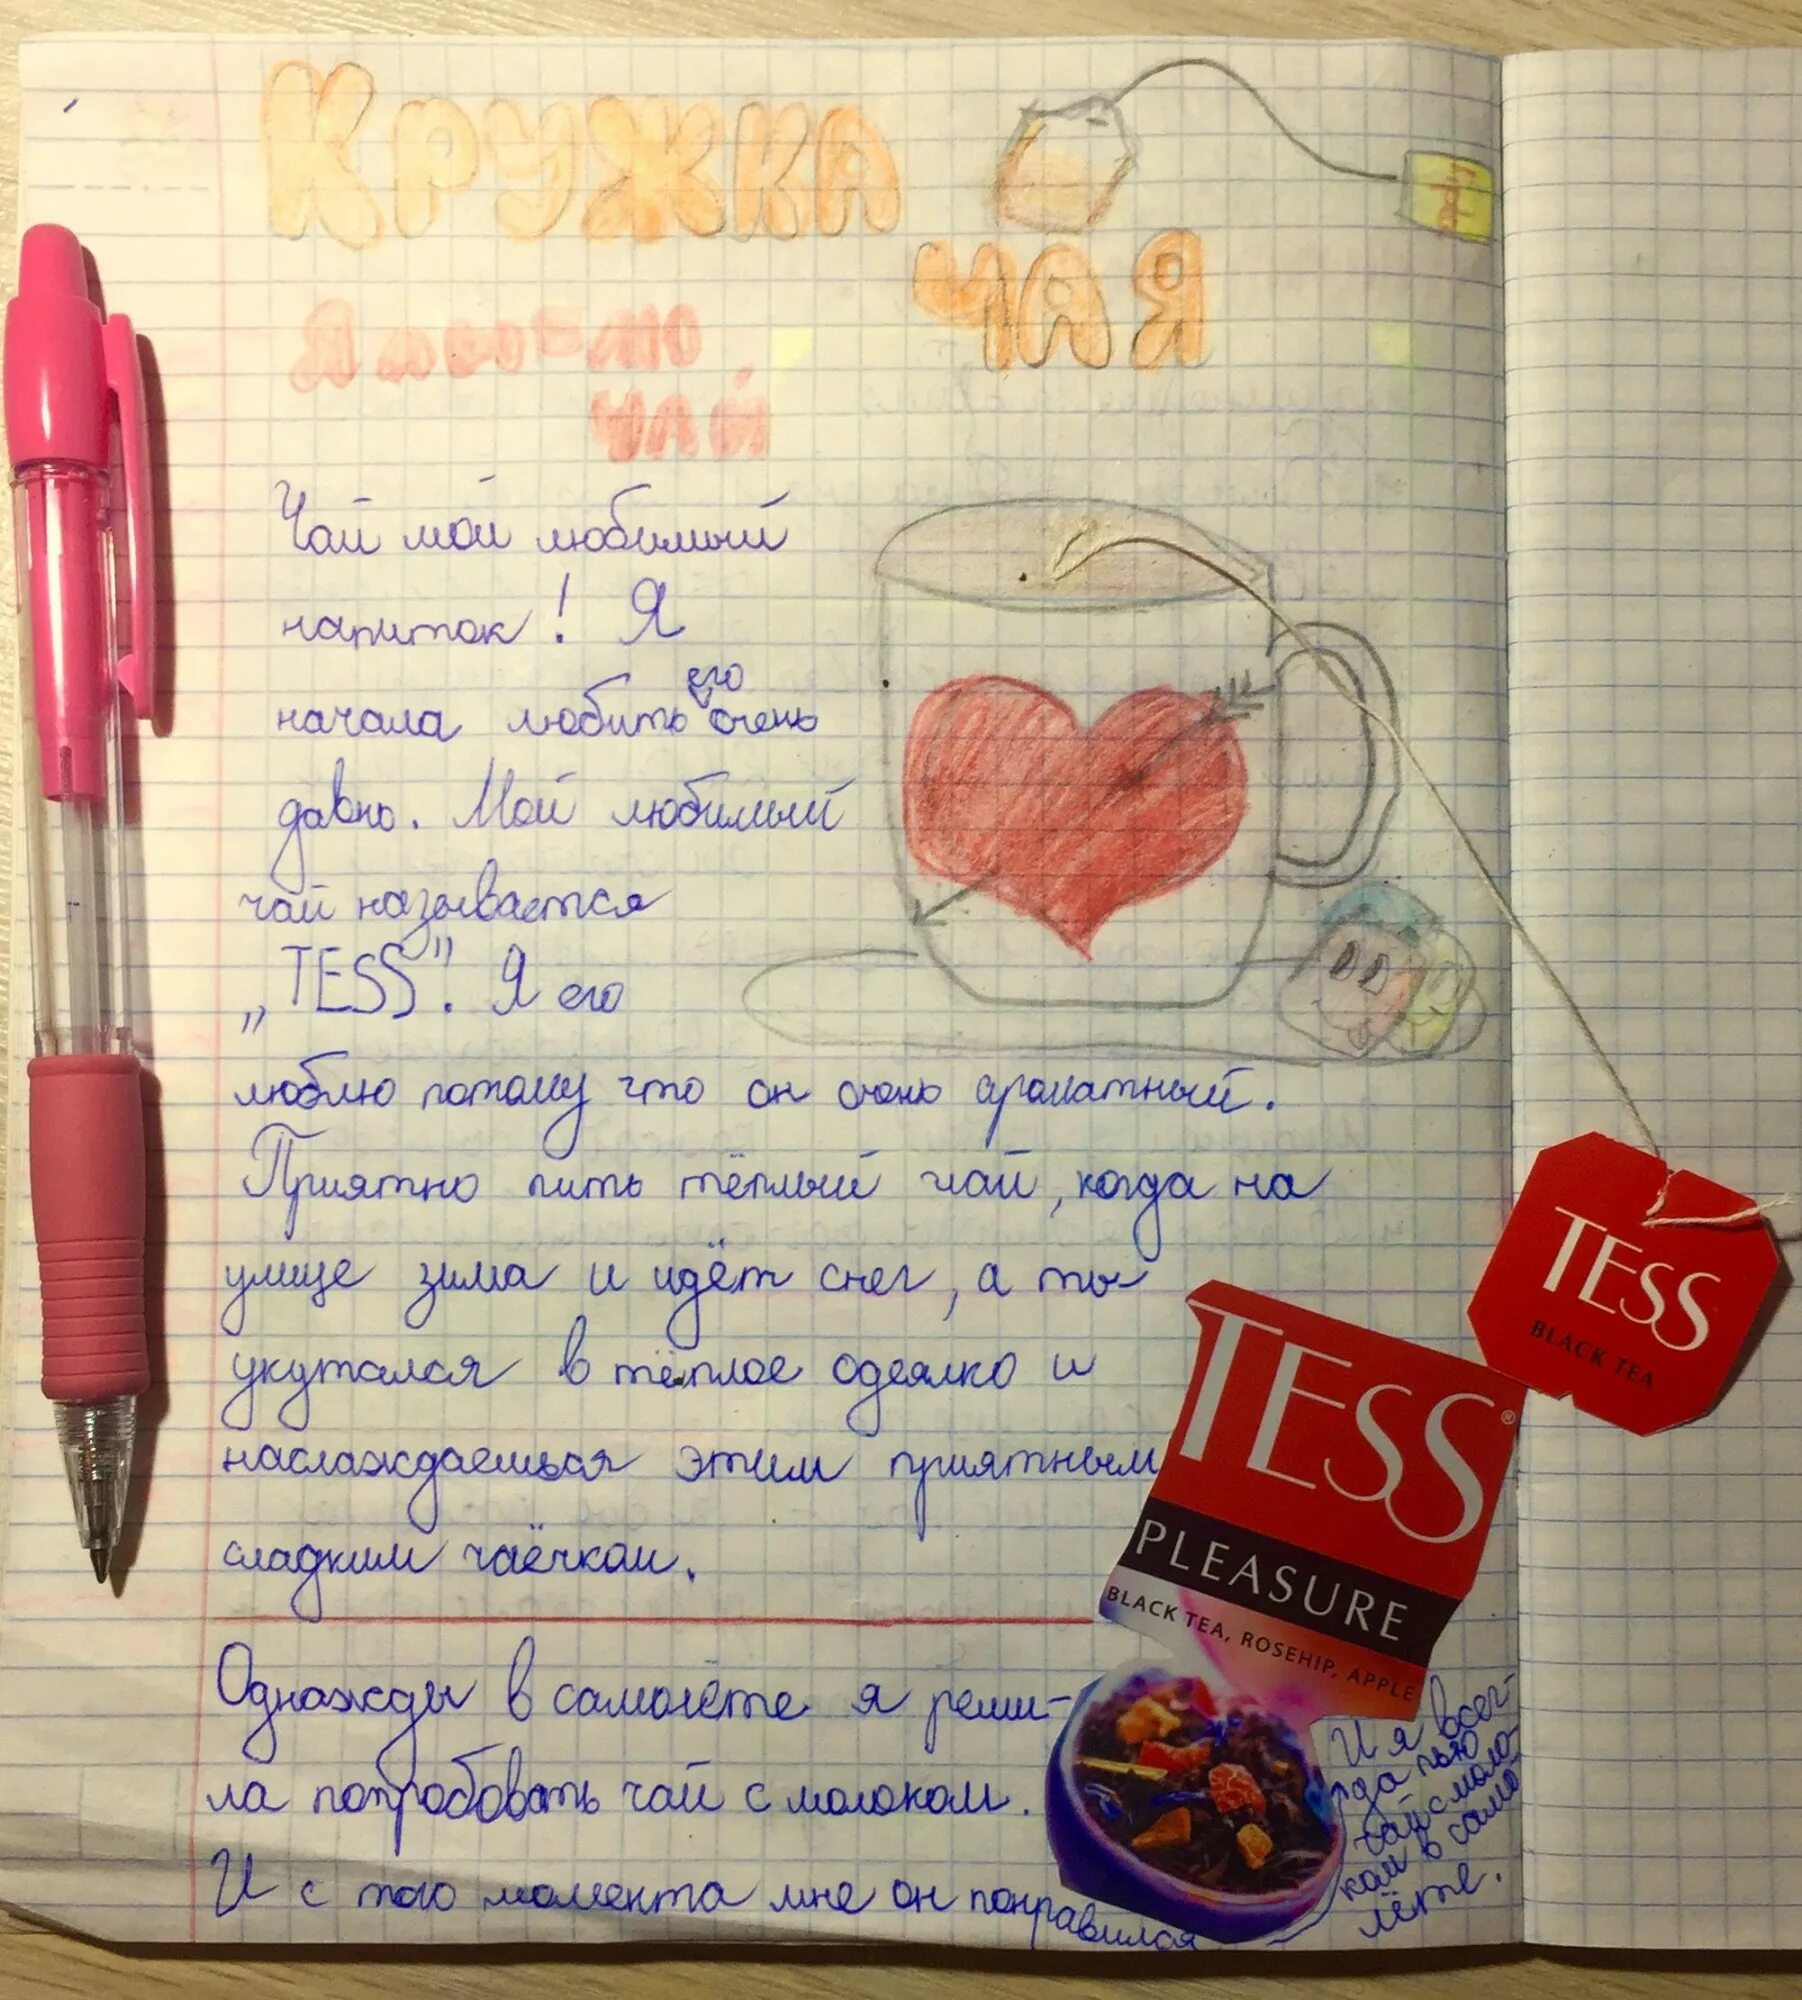 КРУЖКА
ЧАЯ
Я люблю
ЧАЙ
Чай мой любимый
напиток! Я
начала любить его очень
давно. Мой любимый
чай называется
„TESS”. Я его
люблю потому что он очень ароматный.
Приятно пить тёплый чай, когда на
улице зима и идёт снег, а ты
укутался в тёплое одеялко и
наслаждаешься этим приятным
сладким чаёчком.
TESS
BLACK TEA
TESS®
PLEASURE
BLACK TEA, ROSEHIP, APPLE
Однажды в самолёте я реши-
ла попробовать чай с молоком.
И с того момента мне он понравился
И я всег-
да пью
чай с моло-
ком в само-
лёте.